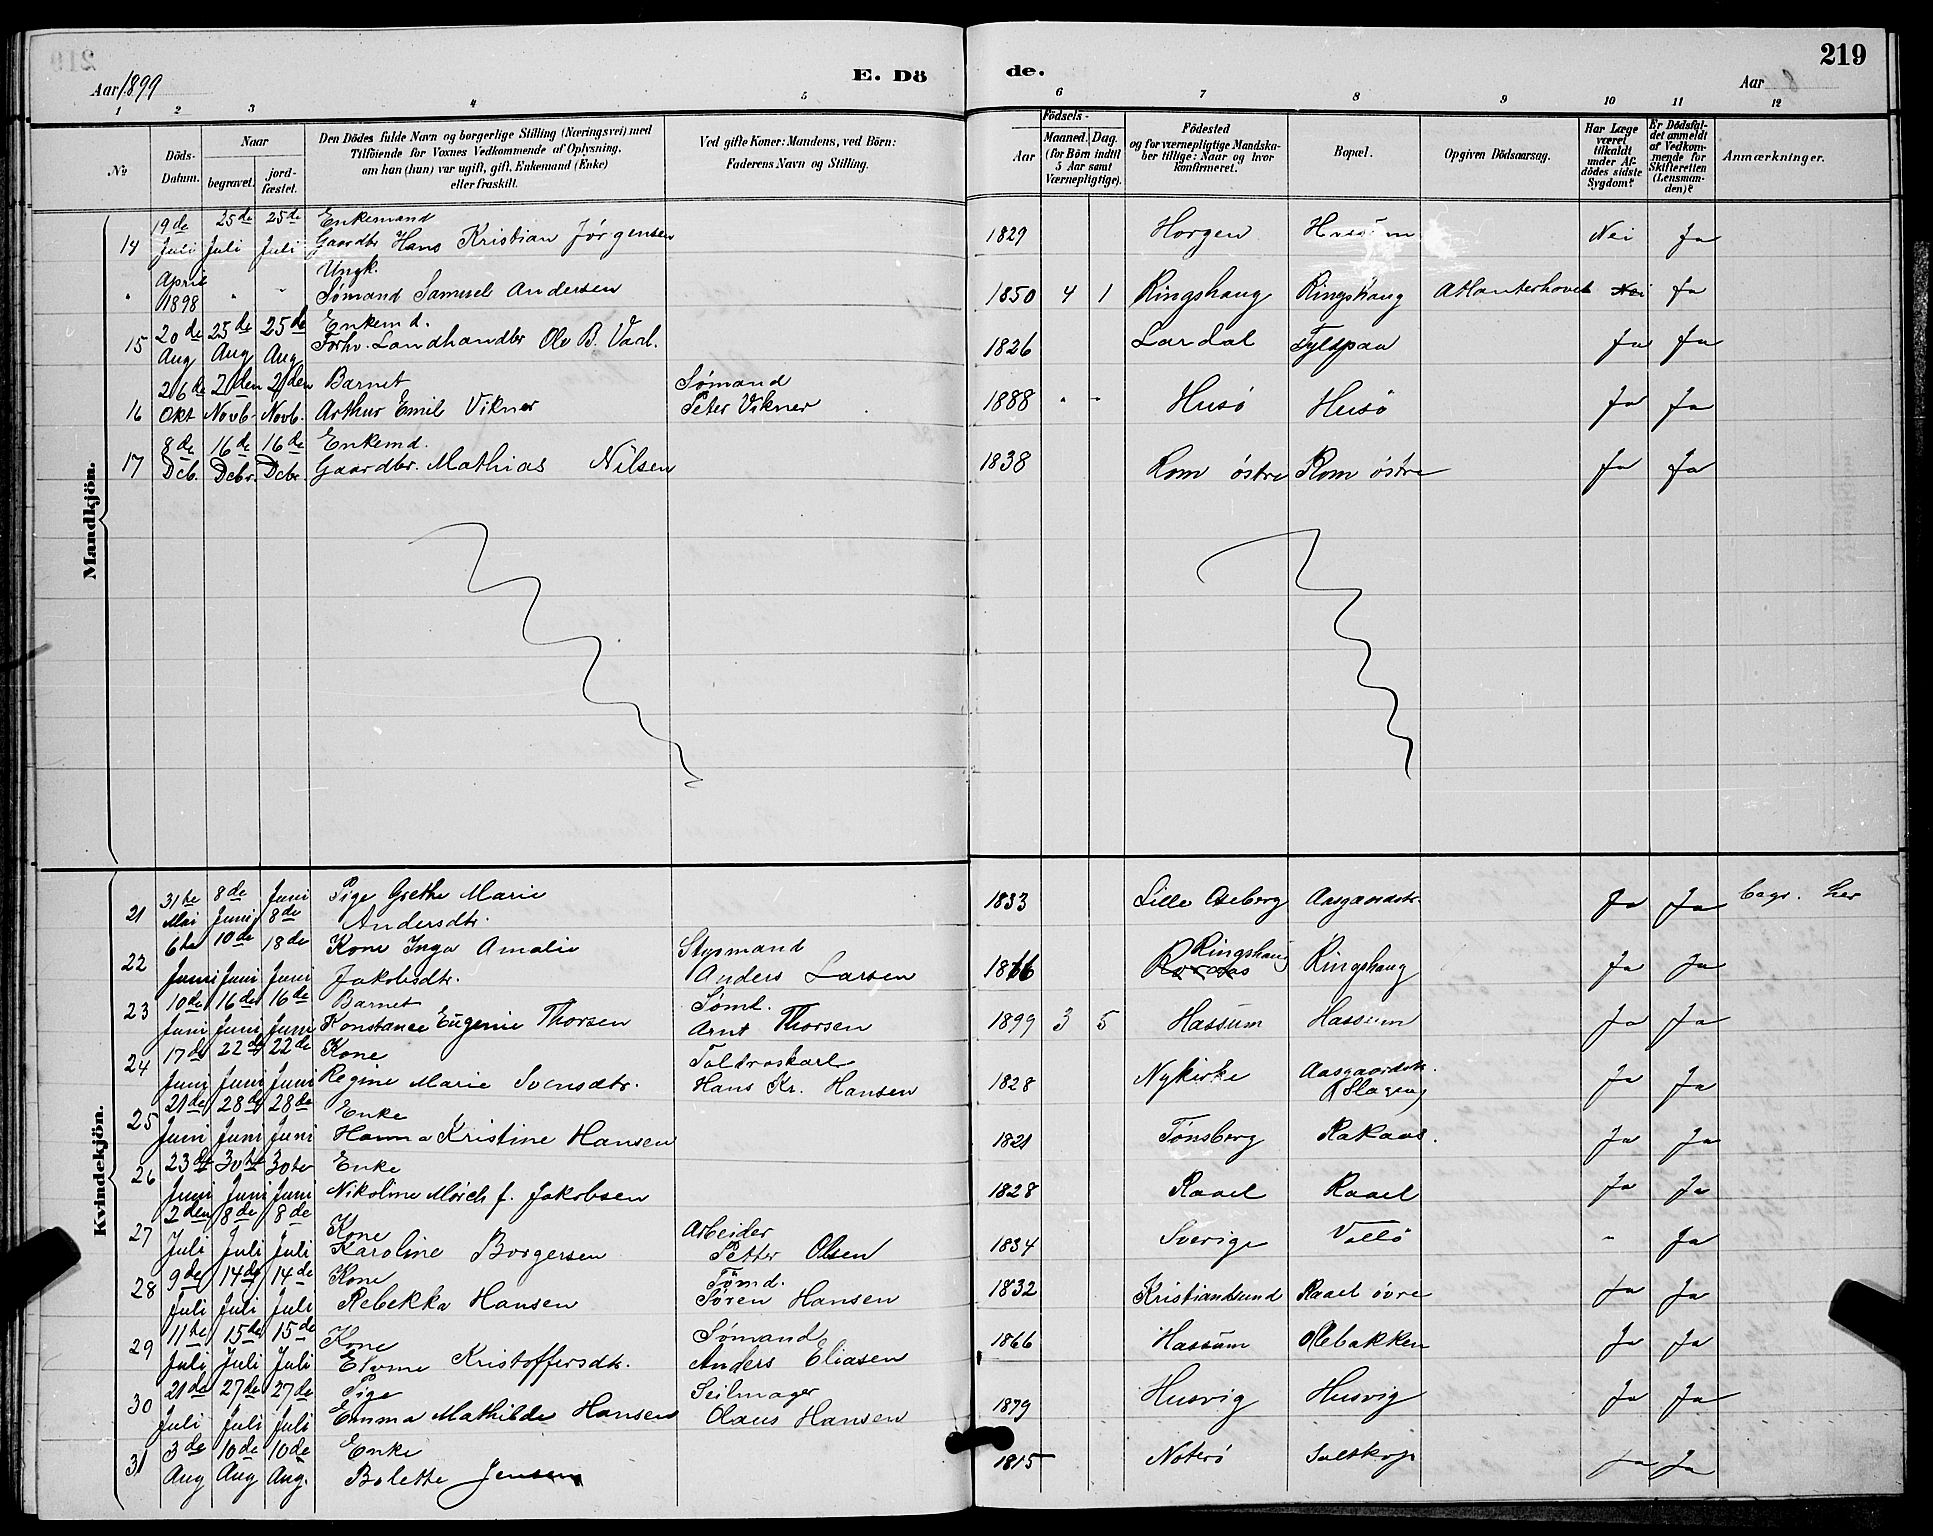 219
Aar 1899
E. Dö
de.
Aar 8
1 2 3 4 5 6 7 8 9 10 11 12
No
Döds-Datum.
Naar
begravet.
jord-fæstet.
Den Dödes fulde Navn og borgerlige Stilling (Næringsvei) med
Tilföiende for Voxnes Vedkommende af Oplysning,
om han (hun) var ugift, gift, Enkemand (Enke)
eller fraskilt.
Ved gifte Koner: Mandens, ved Börn:
Faderens Navn og Stilling.
Födsels-
Aar
Maaned. Dag.
(for Börn indtil
5 Aar samt
Værnepligtige).
Födested
og for værnepligtige Mandska-
ber tillige: Naar og hvor
konfirmeret.
Bopæl.
Opgiven Dödsaarsag.
Har Læge
været
tilkaldt
under Af-
dödes sidste
Sygdom?
Er Dödsfal-
det anmeldt
af Vedkom-
mende for
Skifteretten
(Lensman-
den)?
Anmærkninger.
Mandkjön.
19de 25de 25de Enkemand
14 Juli Juli Juli Gaardbr Hans Kristian Jörgensen 1829 Horgen Hassum Nei Ja
April Ungk.
" 1898 " " Sømand Samuel Andersen 1850 4 1 Ringshaug Ringshaug Atlanterhavet Nei Ja
20de 25de 25de Enkemd.
15 Aug Aug Aug Forhv. Landhandler Ole B. Vaal. 1826 Lardal Ja Ja
26de 2den 2den Barnet Sømand
16 Okt Novb. Novb. Arthur Emil Vikner Peter Vikner 1888 " " Husö Husö Ja Ja
8de 16de 16de Enkemd.
17 Dcb. Dcbr. Dcbr. Gaardbr. Mathias Nilsen 1838 Rom östre Rom östre Ja Ja
Kvindekjön.
31te 8de Juni Pige Grethe Marie
21 Mai Juni 8de Andersdtr. 1833 Lille Oseberg Aasgaardstr. Ja Ja begr. her
6te 10de 18de Kone Inga Amalie Styrmand Ringshaug
22 Juni Juni Juni Jakobsdtr. Anders Larsen 1866 Ringshaug Ja Ja
10de 16de 16de Barnet Sømd.
23 Juni Juni Juni Konstance Eugenie Thorsen Arnt Thorsen 1899 3 5 Hassum Hassum Ja Ja
17de 22de 22de Kone Toldroskarl Aasgaardstr.
24 Juni Juni Juni Regine Marie Svensdtr. Hans Kr. Hansen 1828 Nykirke (Slagen) Ja Ja
21de 28de 28de Enke
25 Juni Juni Juni Hanna Kristine Hansen 1821 Tönsberg Rakaas. Ja Ja
23de 30te 30te Enke
26 Juni Juni Juni Nikoline Mörch f. Jakobsen 1828 Raael Raael Ja Ja
2den 8de 8de Kone Arbeider
27 Juli Juli Juli Karoline Borgersen Petter Olsen 1834 Sverige Vallö " Ja
9de 14de 14de Kone Tömd.
28 Juli Juli Juli Rebekka Hansen Sören Hansen 1832 Kristiansund Raael övre Ja Ja
11te 15de 15de Kone Sømand
29 Juli Juli Juli Elvine Kristoffersdtr. Anders Eliasen 1866 Hassum Olebakken Ja Ja
21de 27de 27de Pige Seilmager
30 Juli Juli Juli Emma Mathilde Hansen Olaus Hansen 1879 Husvig Husvig Ja Ja
3de 10de 10de Enke
31 Aug Aug Aug. Bolette Jensen 1815 Noterö Saltkop Ja Ja